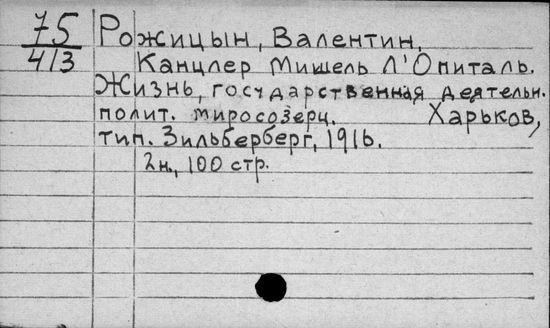 75
4/3
Рожицын, Валентин,
Канцлер Мишель Л'Опиталь.
Жизнь, государственная деятельн.
полит. миросозерц. Харьков,
тип. Зильберберг, 1916.
2н., 100 стр.